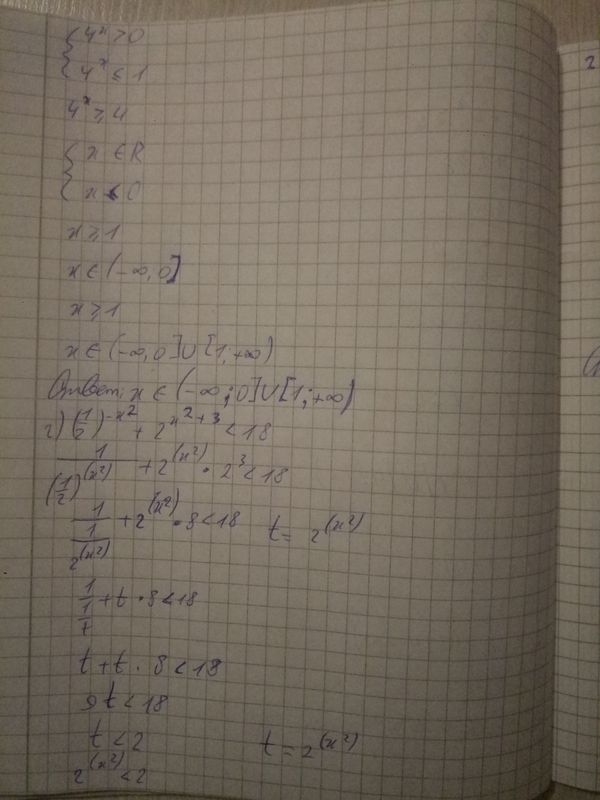 { 4ˣ > 0
{ 4ˣ ≤ 1
4ˣ ≥ 4
{ x ∈ R
{ x ≤ 0
x ≥ 1
x ∈ (-∞, 0]
x ≥ 1
x ∈ (-∞, 0] ∪ [1; +∞)
Ответ: x ∈ (-∞; 0] ∪ [1; +∞)
г) (1/2)^(-x²) + 2^(x²+3) < 18
1/(1/2)^(x²) + 2^(x²) · 2³ < 18
1/(1/2^(x²)) + 2^(x²) · 8 < 18 t = 2^(x²)
1/(1/t) + t · 8 < 18
t + t · 8 < 18
9t < 18
t < 2 t = 2^(x²)
2^(x²) < 2
2